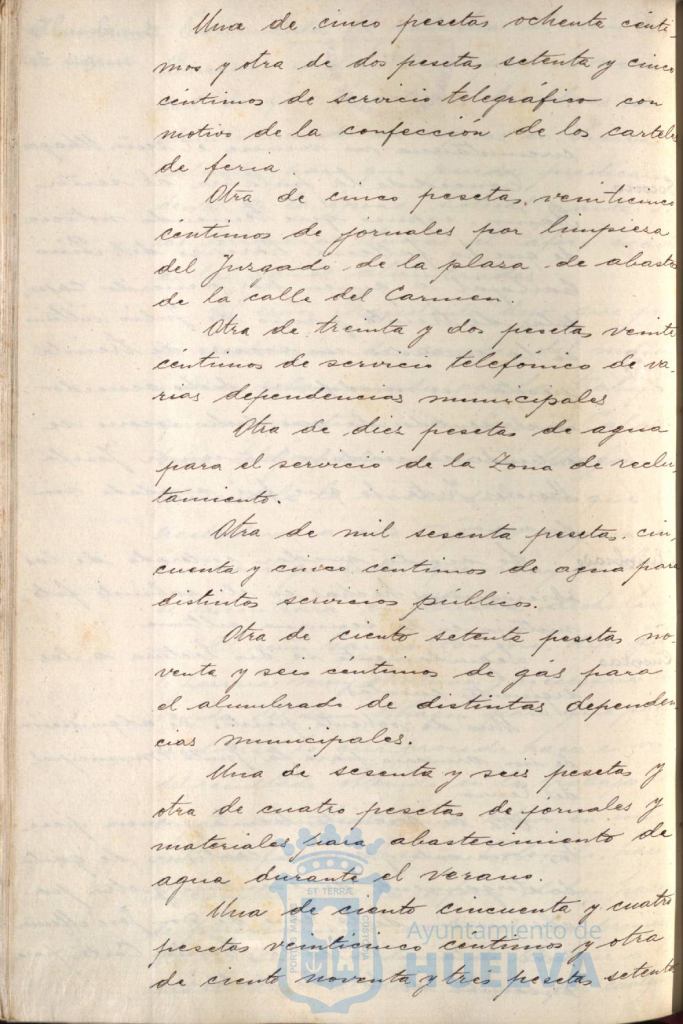 Una de cinco pesetas ochenta cénti-
mos y otra de dos pesetas setenta y cinco
céntimos de servicio telegráfico con
motivo de la confección de los carteles
de feria.
Otra de cinco pesetas veinticinco
céntimos de jornales por limpieza
del Juzgado de la plaza de abasto
de la calle del Carmen.
Otra de treinta y dos pesetas veinte
céntimos de servicio telefónico de va-
rias dependencias municipales
Otra de diez pesetas de agua
para el servicio de la Zona de reclu-
tamiento.
Otra de mil sesenta pesetas cin-
cuenta y cinco céntimos de agua para
distintos servicios públicos.
Otra de ciento setenta pesetas no-
venta y seis céntimos de gas para
el alumbrado de distintas dependen-
cias municipales.
Una de sesenta y seis pesetas y
otra de cuatro pesetas de jornales y
materiales para abastecimiento de
agua durante el verano.
Una de ciento cincuenta y cuatro
pesetas veinticinco céntimos y otra
de ciento noventa y tres pesetas setenta
Ayuntamiento de
HUELVA
PORTUS MARIS ET TERRÆ CUSTODIA